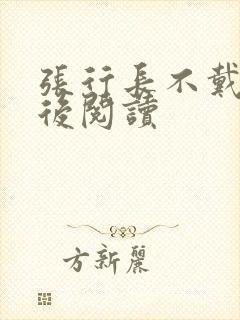 張行長不戴
後閱讀
方新麗